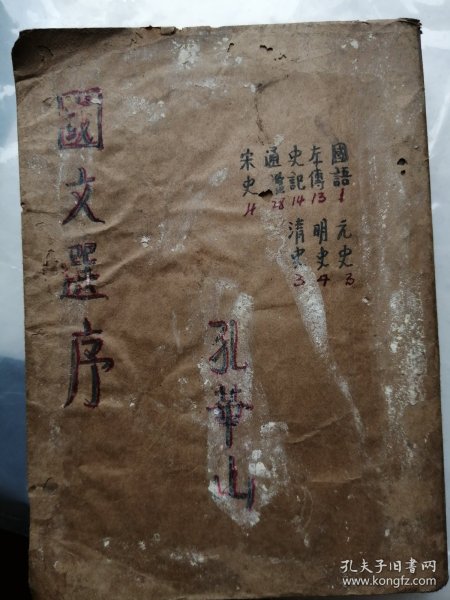 國語 1 元史 3
左傳 13 明史 4
史記 14 清史 3
通鑑 28
宋史 4
國文選序
孔華山
孔夫子旧书网
www.kongfz.com